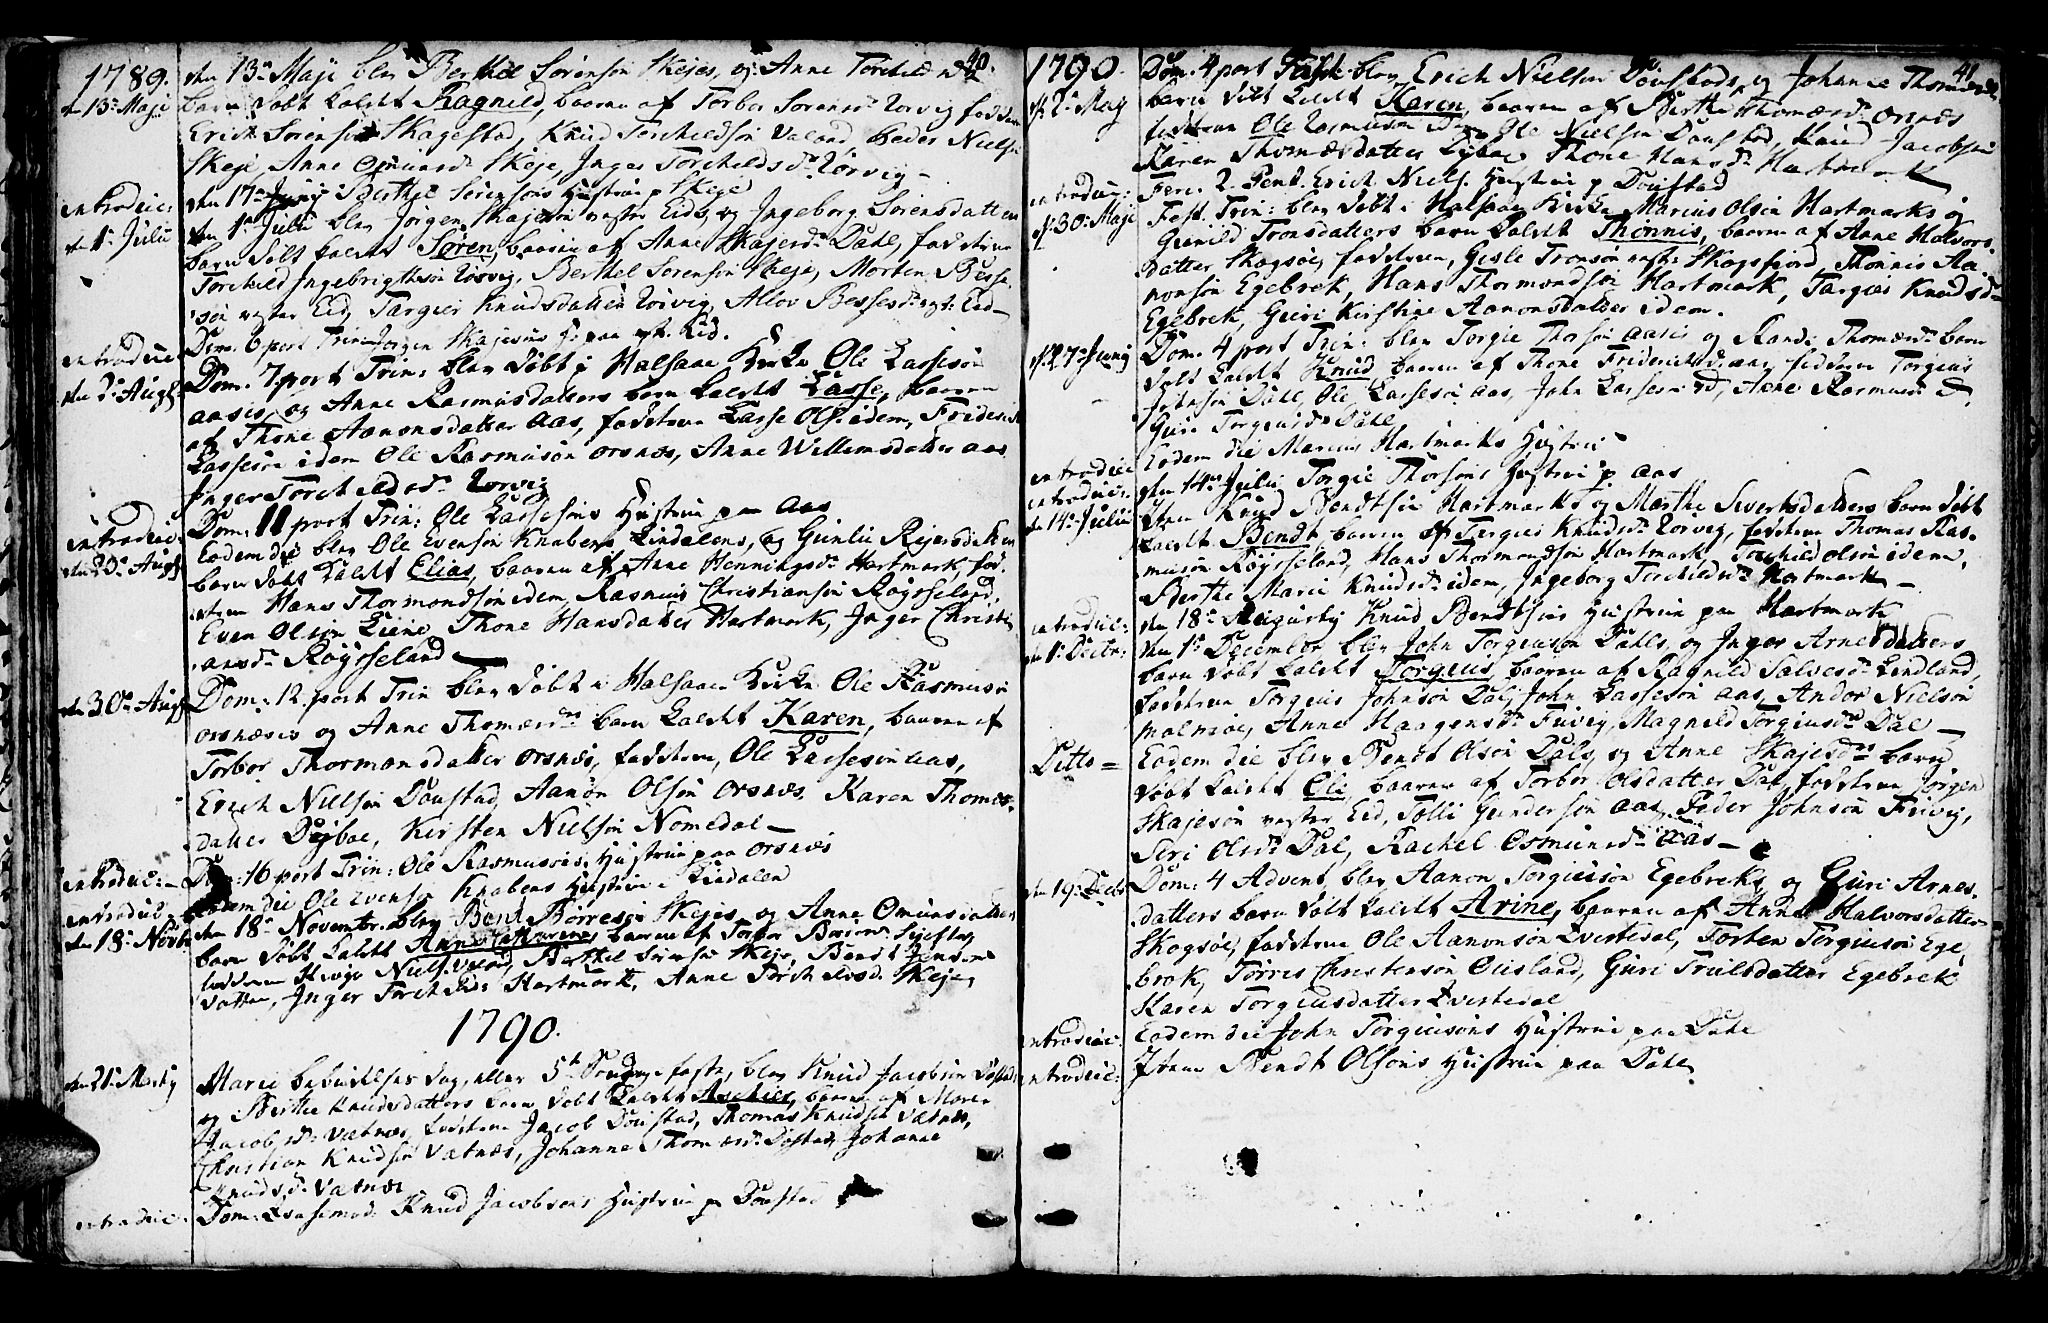 40.
1789.
den 13de Maji blev Berthel Sørensøn Skejes, og Anne Torchilds
den 13de Maji
barn døbt kaldt Ragnild, baaren af Torbor Sørensd: Torvig faddere
Erich Sørensøn Skagestad, Knud Torchildsøn Valand, Peder Niels:
Skeje, Anne Skeje, Inger Torchildsd: Torvig
introduc:
den 17de Junij Berthel Sørensøns Hustrue p Skeje
den 1te Julii
den 1te Julii blev Jørgen Skajesøn vester Eids, og Ingeborg Sørensdatters
barn døbt kaldt Søren, baaren af Anne Skajesd: Dahl, faddere
Torchild Ingebrigthsøn Torvig, Berthel Sørensøn Skeje, Morten Besse-
søn vester Eid, Targier Knudsdatter Torvig, Allov Bessesd: vest: Eid
introduc:
Dom: 6 post Trin: Jørgen Skajesøns H: paa vest: Eid.
den 2de Aug:
Dom: 7 post Trin: blev døbt i Halsaae Kirke Ole Lassesøn
aasis, og Anne Rasmusdatters barn kaldt Lasse, baaren
af Thone Aanonsdatter Aas, faddere Lasse Ols: idem, Friderich
Lassesøn idem Ole Rasmusøn Orsnes, Anne Willumsdatter aas
Inger Torchildsd: Torvig
introduc:
Dom: 11 post Trin: Ole Lassesøns Hustrue paa Aas
den 30te Aug:
Eodem die blev Ole Evensøn Knabens Lindalens, og Gunlu Rejersdatters
barn døbt kaldt Elias, baaren af Anne Henningsd: Hartmark, fad-
dere Hans Thormondsøn idem, Rasmus Christiansøn Røysseland,
Even Olsøn Liene, Thone Hansdatter Hartmark, Inger Christi-
ansd: Røysseland
den 30te Aug:
Dom: 12 post Trin blev døbt i Halsaae Kirke Ole Rasmusøn
orsnæsis og Anne Thomæsd: barn kaldt Karen, baaren af
Torbor Thormonsdatter orsnæs, faddere, Ole Lassesøn aas,
Erich Nielsøn Dønstad, Aanon Olsøn orsnæs, Karen Thomæs-
datter Dyjboe, Kirsten Nielsøn Nomedal
introduc:
Dom: 16 post Trin: Ole Rasmusøns Hustrue paa orsnæs
introduc:
Eodem die Ole Evensø Knabens Hustrue Lindalen
den 18de Novbr:
den 18de Novembr. blev Bend Børresøn Skejes og Anne Omundsdatters
barn døbt kaldt Anne Cathrine, baaren af Torbor
faddere Niels: Valand, Berthel Sørensøn Skeje, Bendt Jensøn
Vatne, Inger Torchilds: Hartmark, Anne Torchildsd. Skeje
1790.
den 21de Martij
Marie bebudelses Dag, eller 5te Søndag i faste, blev Knud Jacobsøn Dønstad
og Berthe Knudsdatters barn døbt kaldt baaren af Maren
Jacobsd: Vatnæs, faddere Jacob Dønstad, Thomas Knudsøn Vatnæs,
Christian Knudsøn Vatnæs, Johanne Thomæsd: Dønstad, Johanne
Knudsd: Vatnæs
introduc:
Dom: Qvasimod: Knud Jacobsens Hustrue p Dønstad
41
1790.
Dom. 4 post Pasch: blev Erich Nielsøn Dønstads, og Johanne Thomæsd:
den 2de Maij
barn døbt kaldt Karen, baaren af Berthe Thomæsd: orsnæs
faddere Ole Rasmusøn id: Ole Nielsøn Dønstad, Knud Jacobsøn
Karen Thomæsdatter Dyboe Thone Hansd: Hartmark
introduc:
Feri. 2. Pent. Erich Niels: Hustrue p Dønstad
den 30te Maji
Fest. Trin: blev døbt i Halsaae Kirke Marius Olsøn Hartmarks og
Gunild Tronsdatters barn kaldt Thønnis, baaren af Anne Halvors-
datter Skogsøe, faddere, Gisle Tronsøn vest: Skogsfiord Thønnis Aa-
nonsøn Egebrek, Hans Thormondsøn Hartmark, Targier Knudsd:
Egebrek, Guri Kirstine Aanonsdatter idem.
den 27de Junij
Dom. 4 post Trin: blev Torgie Thorsøn aasis og Rande Thomæsd: barn
døbt kaldt Knud baaren af Thone Friderichsd: aas, faddere Torgius
Johnsøn Dahl, Ole Lassesøn aas, John Lassesøn id, Anne Rasmusd: id.
Guri Torgiusd: Dahl
introduc:
Eodem die Marius Hartmarks Hustrue
introduc:
den 14de Julii Torgie Thorsøns Hustrue p aas
den 14de Julii
Item Knud Bendtsøn Hartmarks og Marthe Sivertsdatters barn døbt
kaldt Bendt, baaren af Targier Knudsd: Torvig, faddere Thomas Ras-
musøn Røysseland, Hans Thormondsøn Hartmark, Torchild Olsøn idem,
Berthe Marie Knudsd: idem, Ingeborg Torchildsd: Hartmark
introduc:
den 18de Augustij Knud Bendtsøns Hustrue paa Hartmark
den 1te Decbr:
den 1te December blev John Torgiusøn Dahls, og Inger Arnesdatters
barn døbt kaldt Torgius, baaren af Ragnild Salvesd: Lindland,
faddere Torgius Johnsøn Dal, John Lassesøn aas, Andor Nielsøn
Malmøe, Anne Haagensd: Frivig, Magnild Torgiusd: Dal
Ditto
Eodem die blev Bendt Olsøn Dals, og Anne Skajesd: barn
døbt kaldt Ole, baaren af Torbor Olsdatter Dal, faddere Jørgen
Skajesøn vester Eid, Tolli Gundersøn aas, Peder Johnsøn Frivig,
Siri Olsd: Dal, Rachel Osmundsd: aas
den 19de Decbr
Dom: 4 Advent blev Aanon Torgiusøn Egebreks, og Guri Arnes-
datters barn døbt kaldt Arine, baaren af Anne Halvorsdatter
Skogsøe, faddere Ole Aanonsøn Qvistedal, Torsten Torgiusøn Ege-
brek, Tørris Christensøn Øisland, Guri Trulsdatter Egebrek
Karen Torgiusdatter Qvistedal
introduc:
Eodem die John Torgiusøns Hustrue paa Dahl
introduc:
Item Bendt Olsøns Hustrue paa Dahl